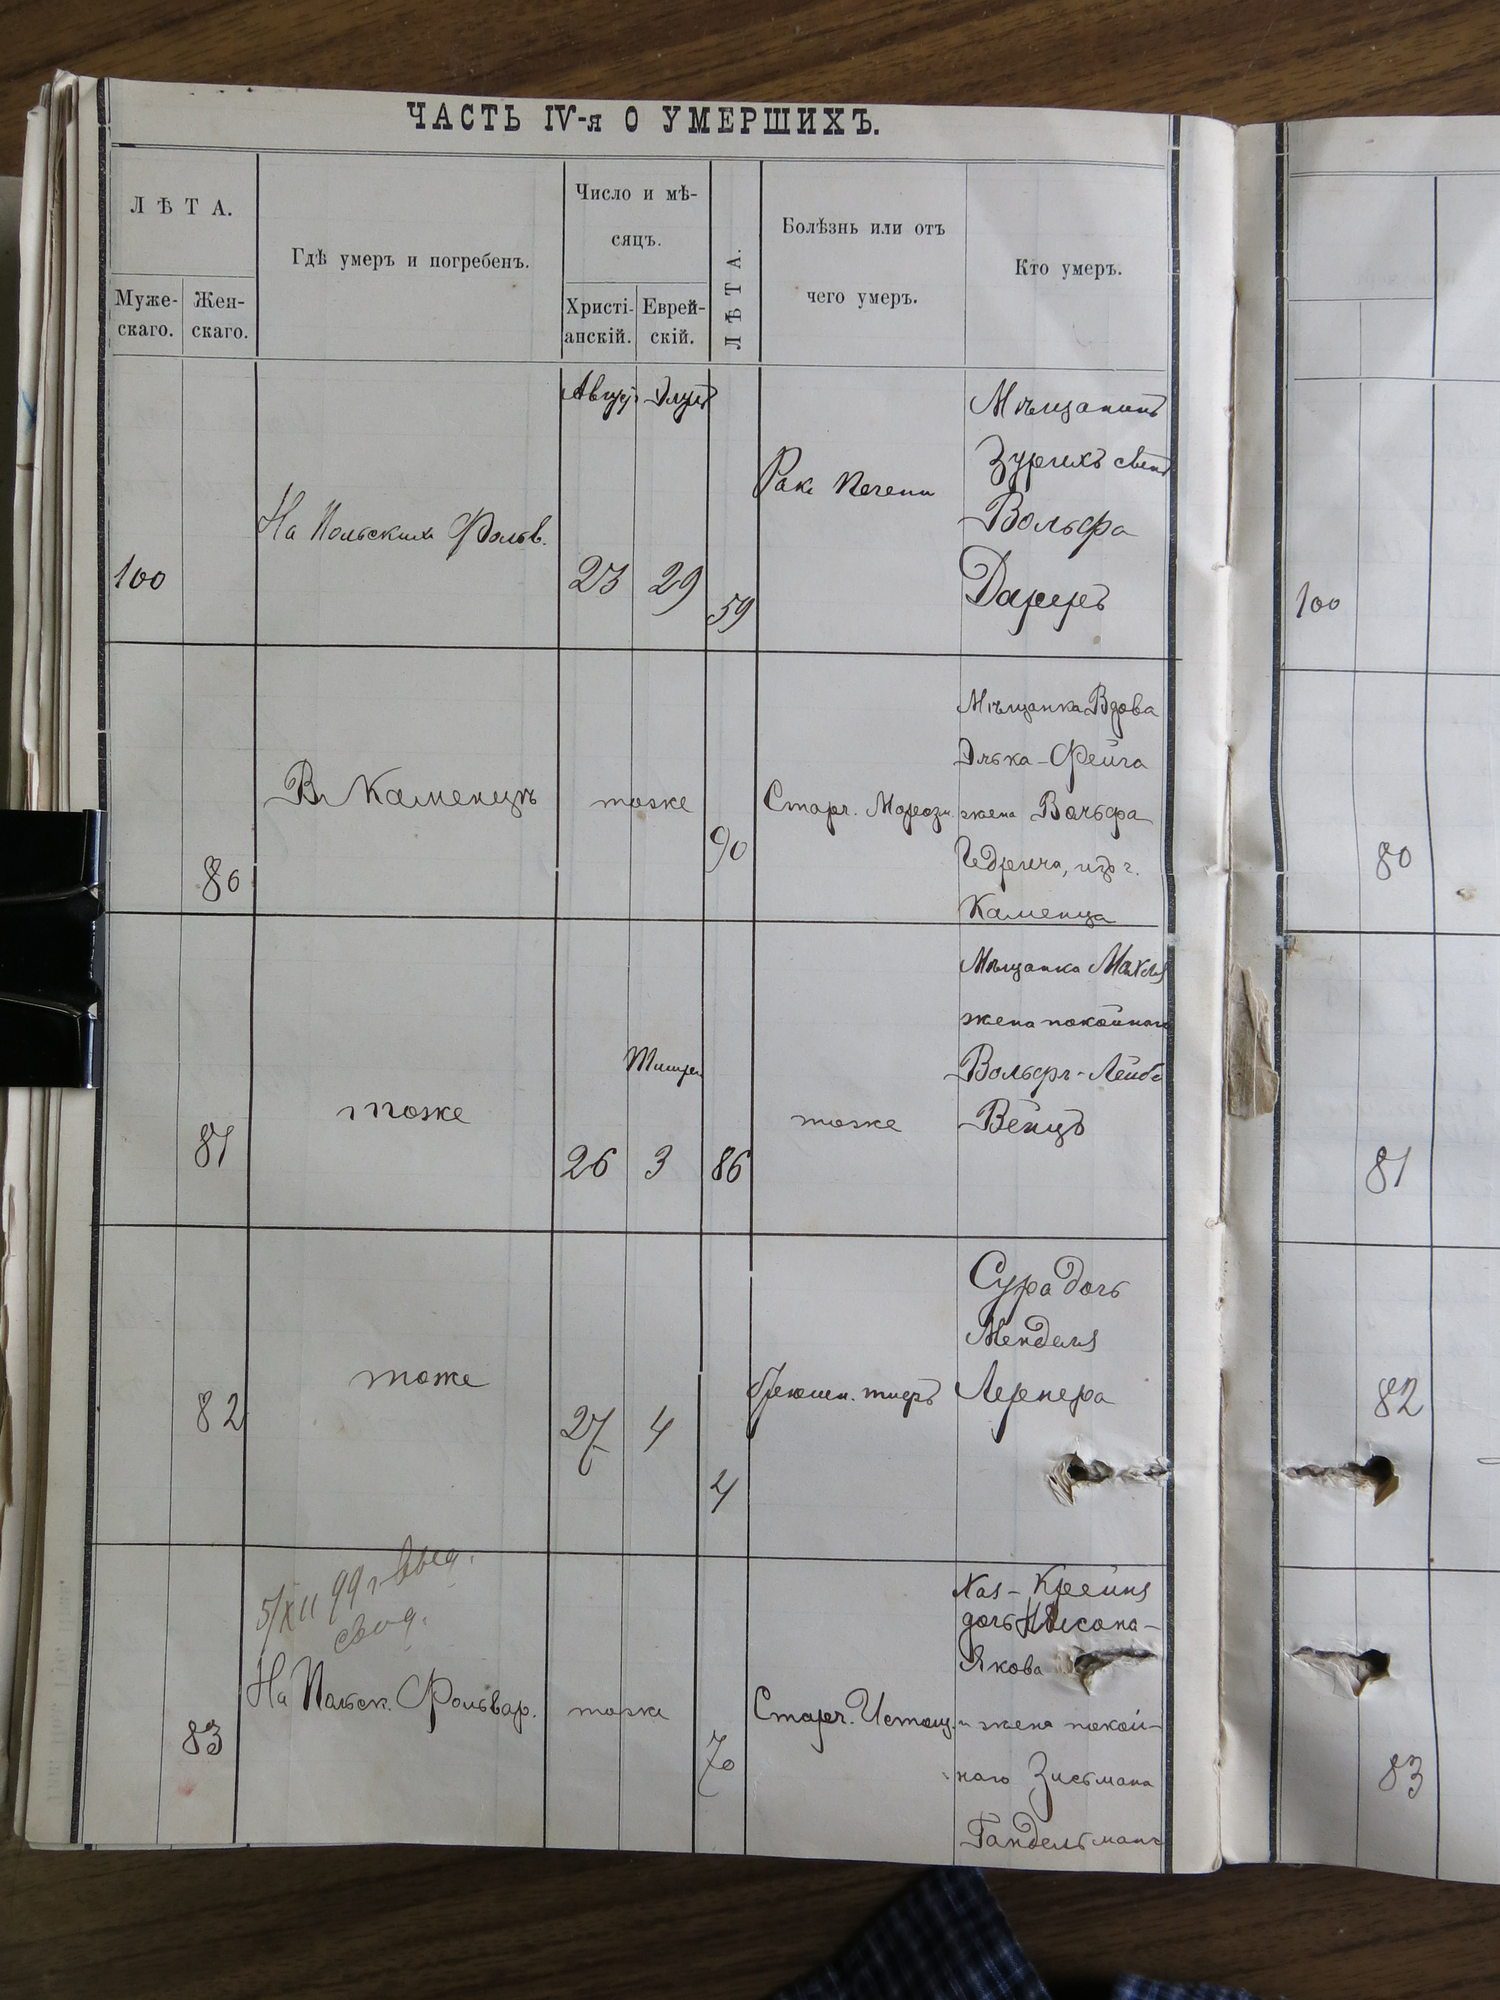 ЧАСТЬ IV-я О УМЕРШИХЪ.
ЛѢТА.
Муже-
скаго.
Жен-
скаго.
Гдѣ умеръ и погребенъ.
Число и мѣ-
сяцъ.
Христі-
анскій.
Еврей-
скій.
ЛѢТА.
Болѣзнь или отъ
чего умеръ.
Кто умеръ.
100
На Польскихъ Фольв.
Авгус
23
Элулъ
29
59
Ракъ печени
Мѣщанинъ
Вольфа
100
80
Въ Каменцѣ
тоже
90
Старч. Маразм.
Мѣщанка Вдова
Элька-Фейга
жена Вольфа
Каменца
80
81
тоже
26
Тишри
3
86
тоже
Мѣщанка Махля
жена покойнаго
Вольфъ-Лейб
Вейцъ
81
82
тоже
27
4
4
брюшн. тифъ
Сура дочь
Менделя
Лернера
82
5/XII 99 г. выд.
свид.
83
На Польск. Фольвар.
тоже
70
Старч. Истощ.
Хая-Крейня
дочь Нисона-
Якова
жена покой-
наго Зисьмана
Гандельманъ
83